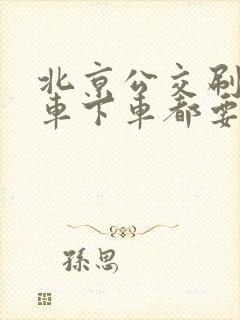 北京公交刷
车下车都要
孫思